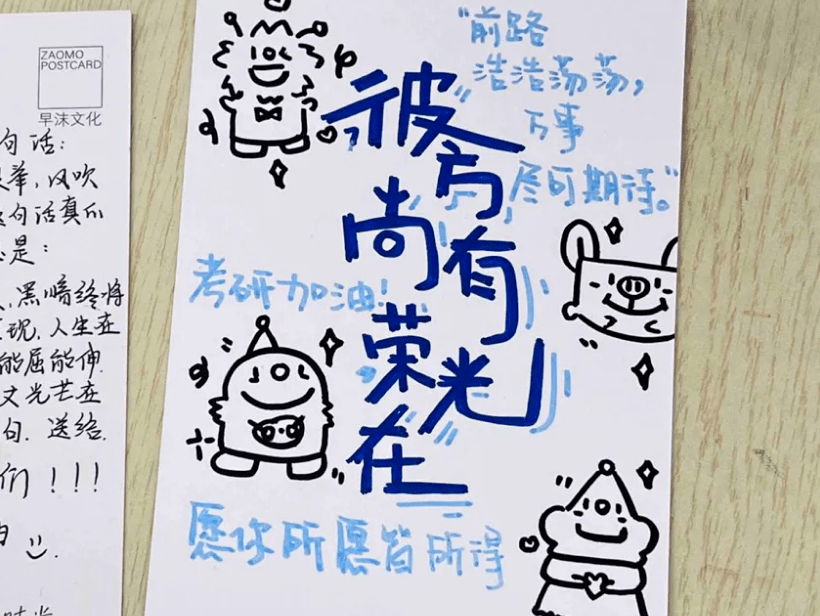 ZAOMO
POSTCARD
早沫文化
句话：
风吹
句话真的
是：
黑暗终将
现，人生在
能屈能伸
文光芒在
句．送给
们！！！
"前路
浩浩荡荡，
万事
尽可期待。"
彼方有光
尚荣在
考研加油！
愿你所愿皆所得